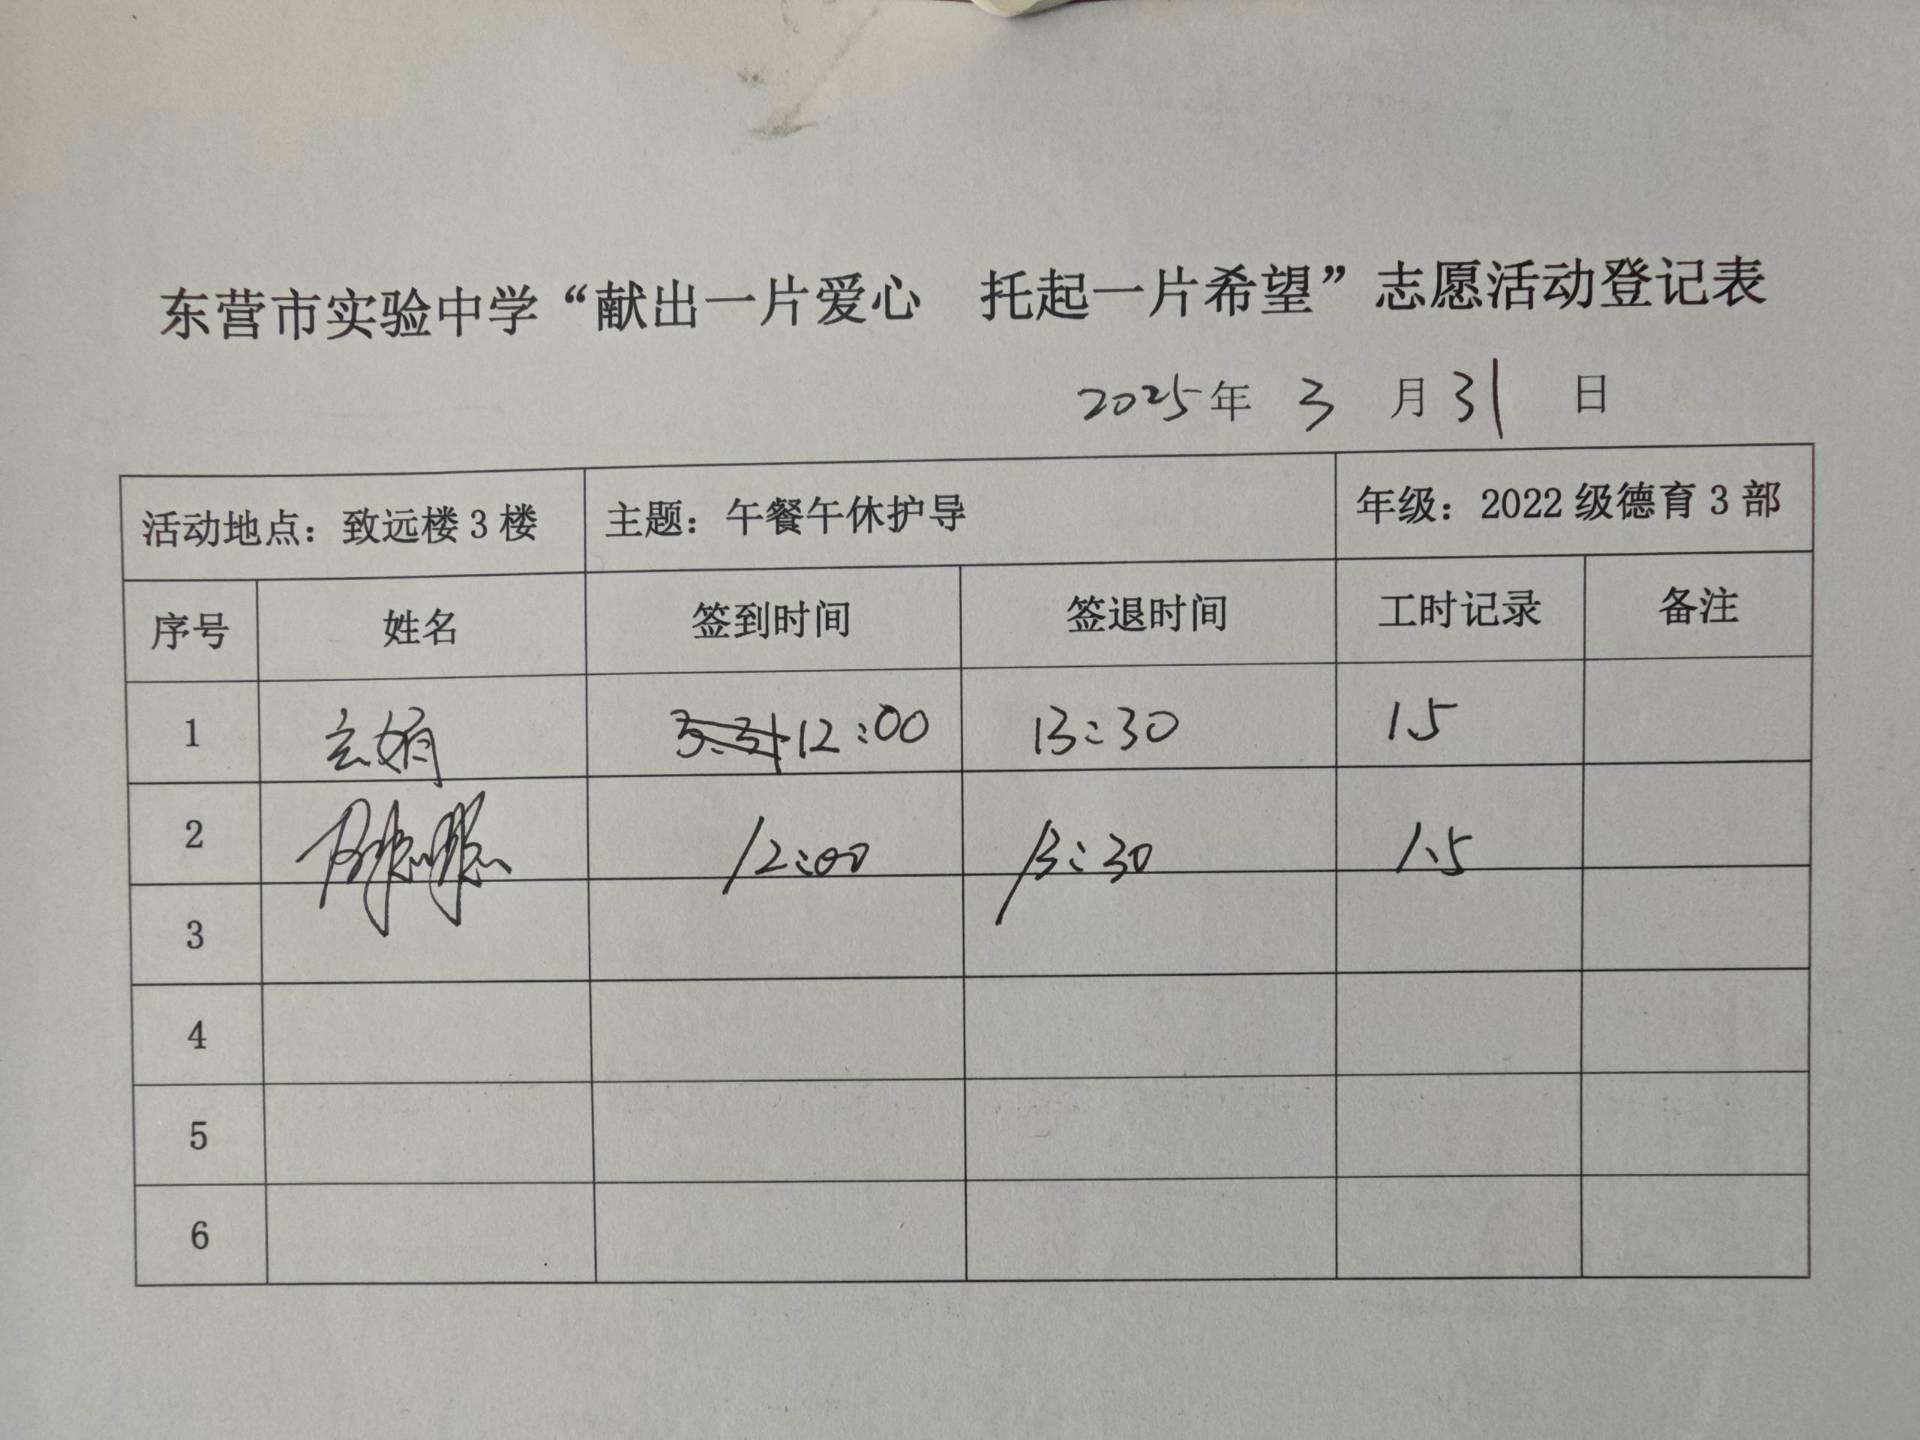 东营市实验中学“献出一片爱心 托起一片希望”志愿活动登记表
2025年 3 月 31 日
活动地点：致远楼3楼 主题：午餐午休护导 年级：2022级德育3部
序号 姓名 签到时间 签退时间 工时记录 备注
1 玄娟 12:00 13:30 1.5
2 12:00 13:30 1.5
3
4
5
6